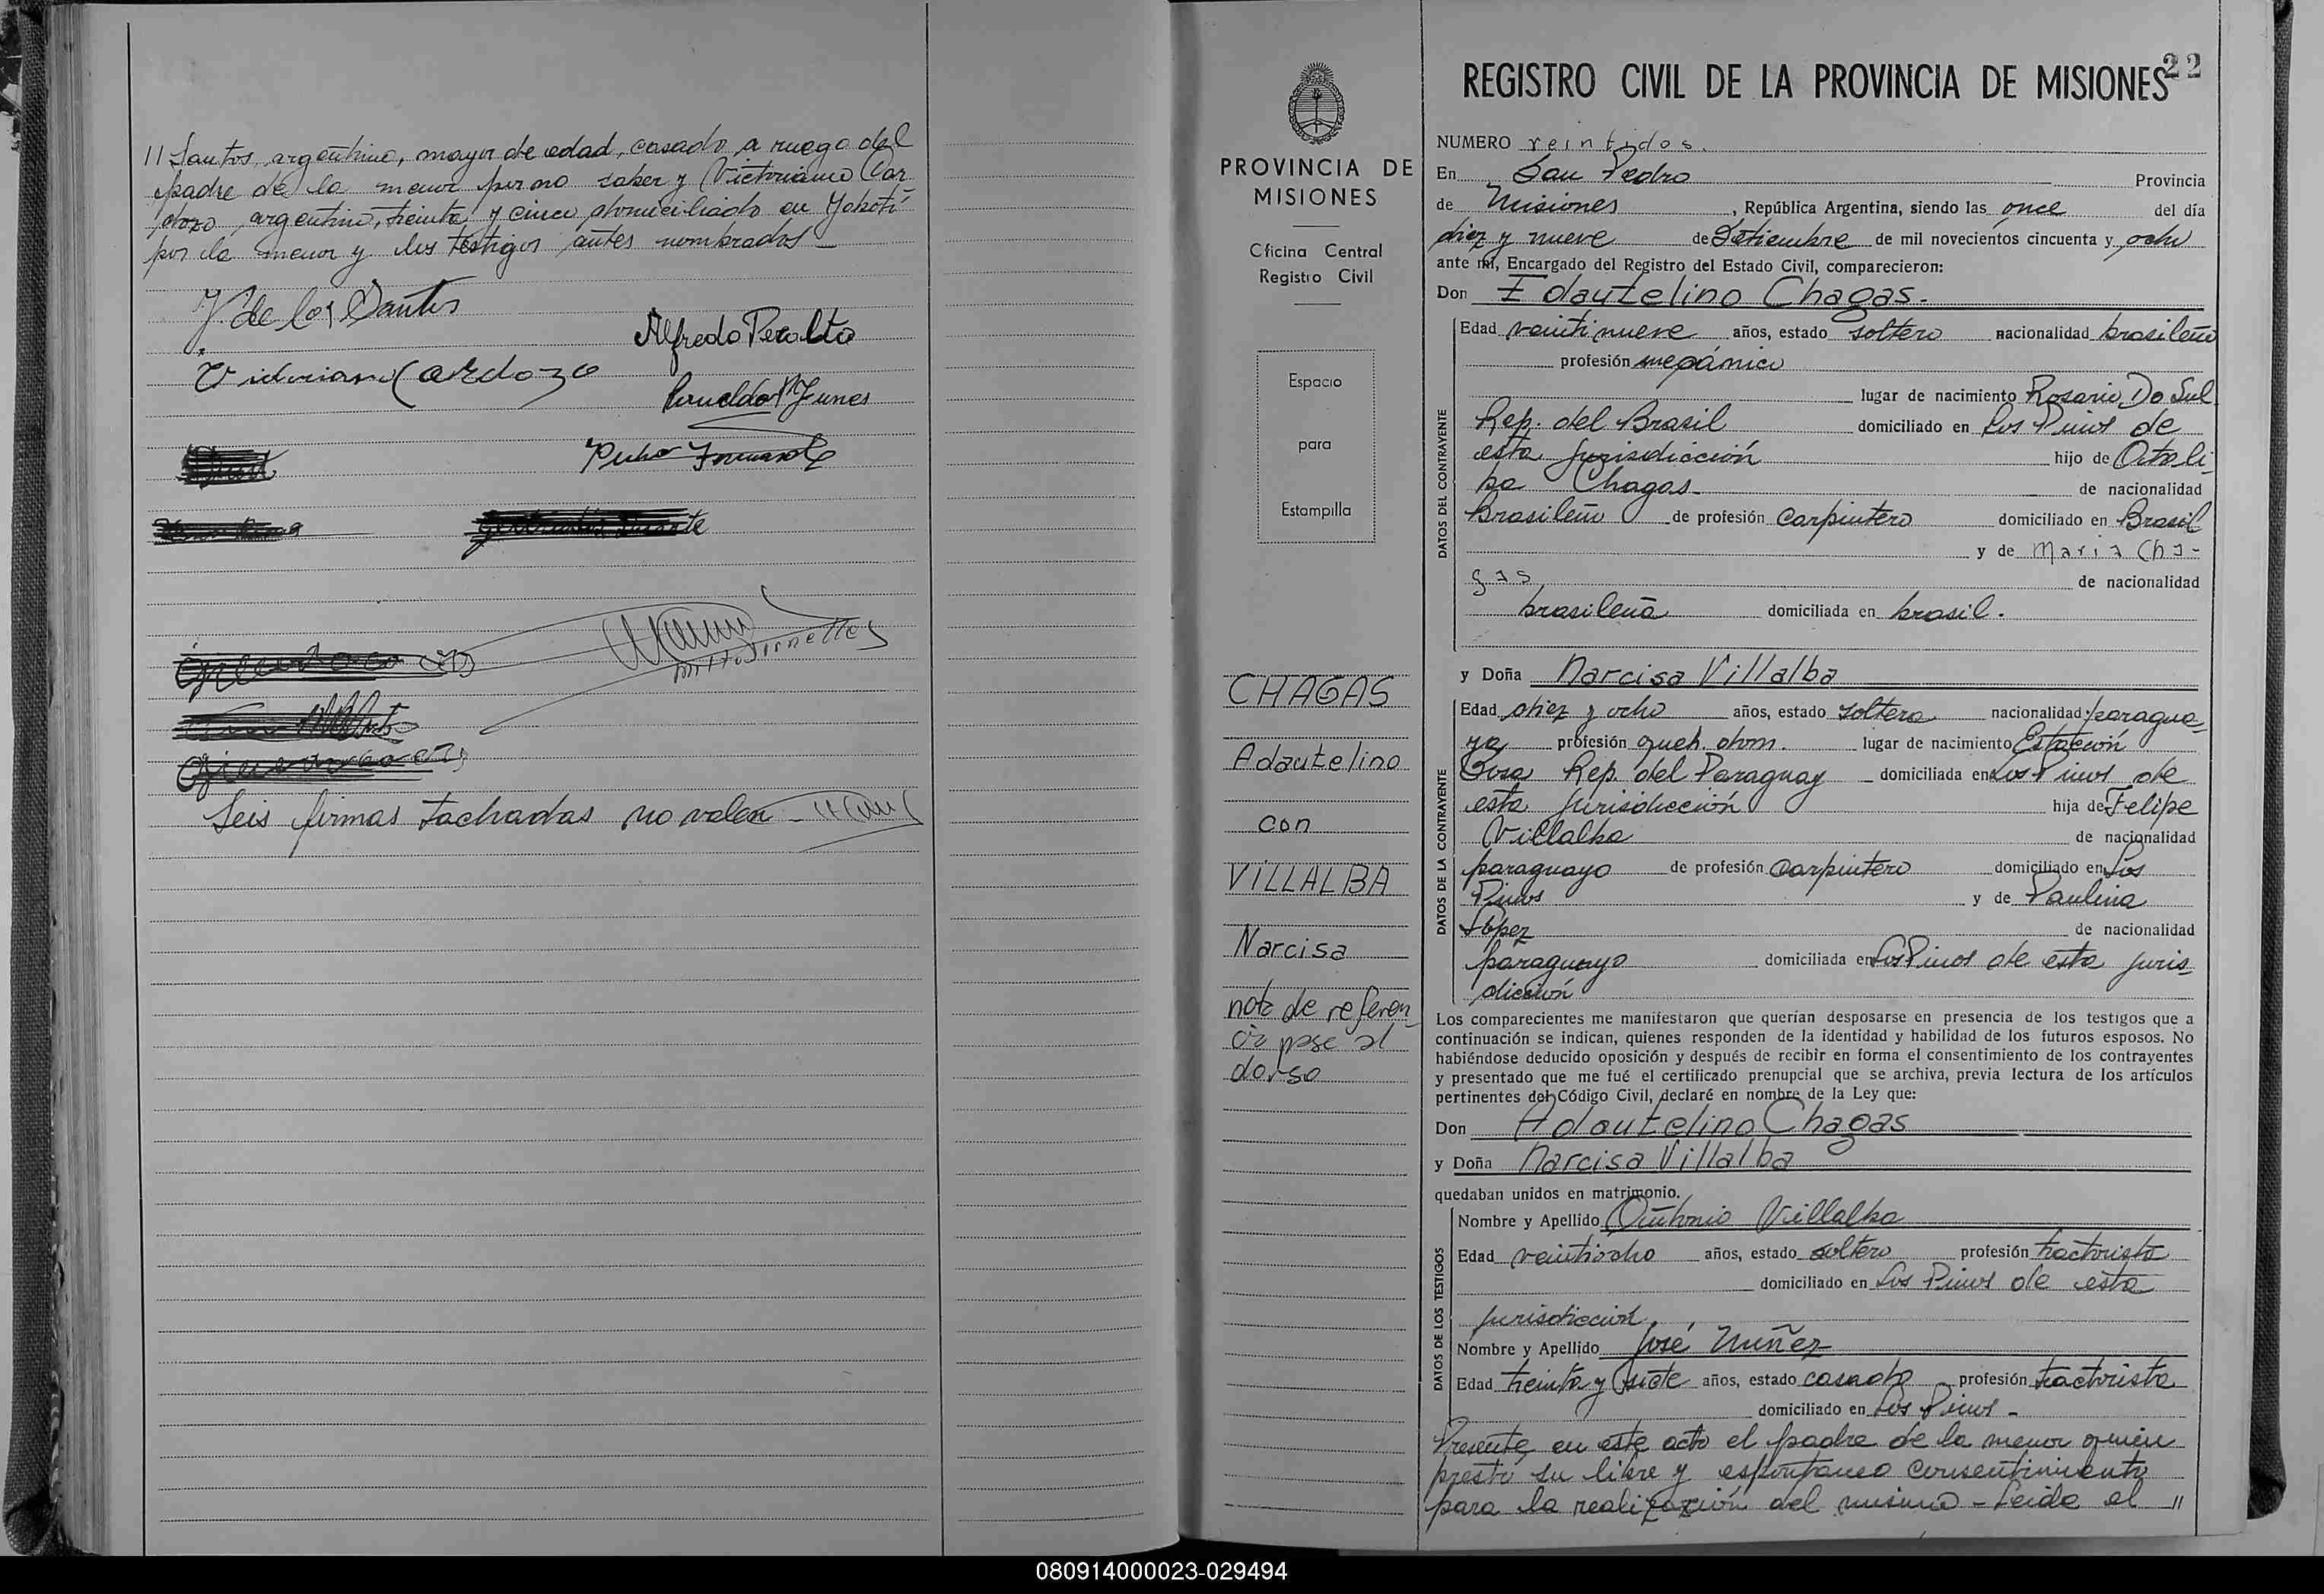 11 Santos, argentino, mayor de edad, casado a ruego del
padre de la menor por no saber y Victoriano Car
dozo, argentino, treinta y cinco domiciliado en
por la menor y los testigos antes nombrados
J. de los Santos
Alfredo Peralta
Victoriano Cardozo
Funes
Pedro
Seis firmas tachadas no valen
PROVINCIA DE
MISIONES
Oficina Central
Registro Civil
Espacio
para
Estampilla
CHAGAS
Adautelino
con
VILLALBA
Narcisa
nota de referen
cia pase al
dorso
22
REGISTRO CIVIL DE LA PROVINCIA DE MISIONES
NUMERO veintidos.
En San Pedro Provincia
de Misiones, República Argentina, siendo las once del día
diez y nueve de Setiembre de mil novecientos cincuenta y ocho
ante mí, Encargado del Registro del Estado Civil, comparecieron:
Don Edautelino Chagas.
DATOS DEL CONTRAYENTE
Edad veintinueve años, estado soltero nacionalidad brasileño
profesión mecánico
lugar de nacimiento Rosario Do Sul
Rep. del Brasil domiciliado en Los Pinos de
esta jurisdicción hijo de
Chagas. de nacionalidad
Brasileño de profesión carpintero domiciliado en Brasil
y de Maria Cha-
gas de nacionalidad
brasileña domiciliada en brasil.
y Doña Narcisa Villalba
DATOS DE LA CONTRAYENTE
Edad diez y ocho años, estado soltera nacionalidad paragua-
ya profesión queh. dom. lugar de nacimiento Estación
Rep. del Paraguay domiciliada en Los Pinos de
esta jurisdicción hija de Felipe
Villalba de nacionalidad
paraguayo de profesión carpintero domiciliado en Los
Pinos y de Paulina
López de nacionalidad
paraguaya domiciliada en Los Pinos de esta juris-
dicción
Los comparecientes me manifestaron que querían desposarse en presencia de los testigos que a
continuación se indican, quienes responden de la identidad y habilidad de los futuros esposos. No
habiéndose deducido oposición y después de recibir en forma el consentimiento de los contrayentes
y presentado que me fué el certificado prenupcial que se archiva, previa lectura de los artículos
pertinentes del Código Civil, declaré en nombre de la Ley que:
Don Adautelino Chagas
y Doña Narcisa Villalba
quedaban unidos en matrimonio.
DATOS DE LOS TESTIGOS
Nombre y Apellido Antonio Villalba
Edad veintiocho años, estado soltero profesión tractorista
domiciliado en Los Pinos de esta
jurisdicción
Nombre y Apellido José Nuñez
Edad treinta y siete años, estado casado profesión tractorista
domiciliado en Los Pinos -
Presente en este acto el padre de la menor quien
prestó su libre y espontaneo consentimiento
para la realización del mismo - Leida el 11
080914000023-029494